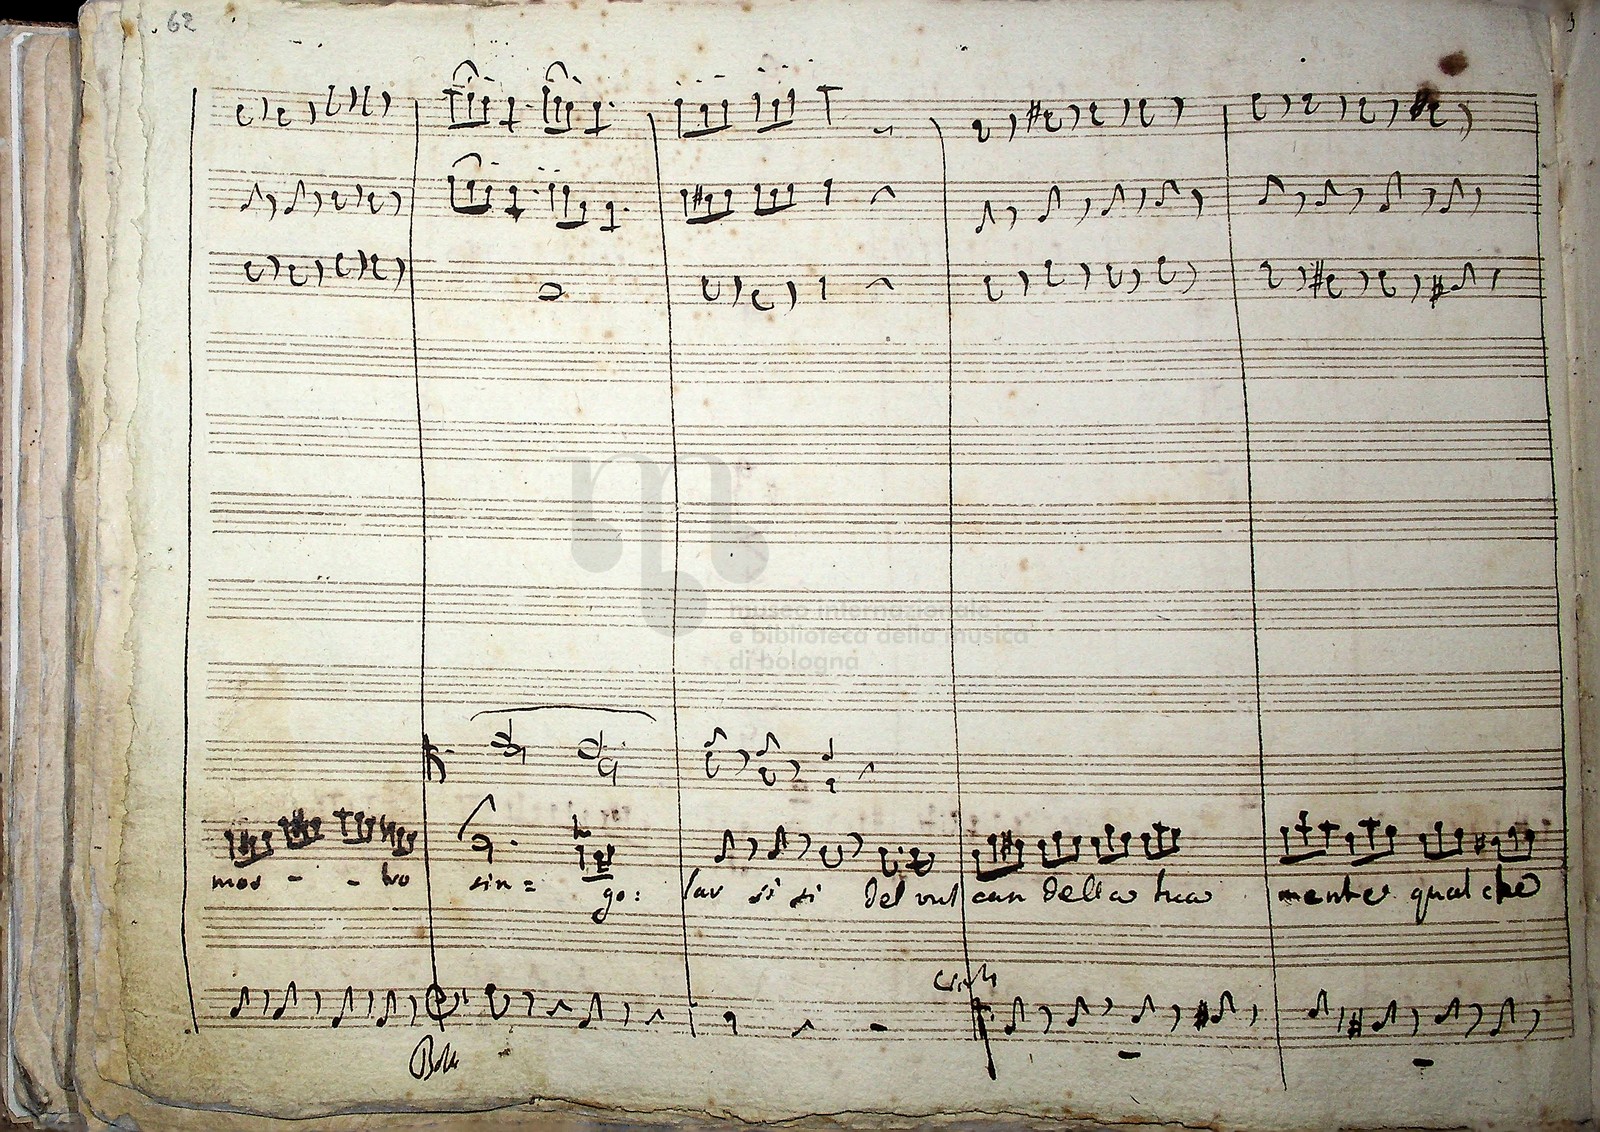 62
museo internazionale
e biblioteca della musica
di bologna
mos - - tro sin= go: lar si si del vul can della tua mente qual che